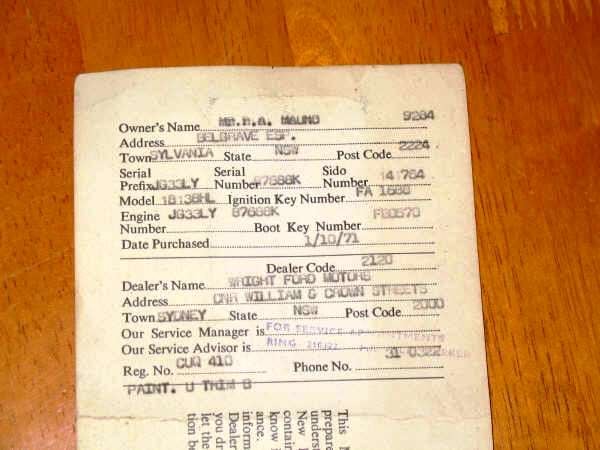 9264
Owner's Name Mr.B.A. MAUND
Address BELGRAVE ESP.
Town SYLVANIA State NSW Post Code 2224
Serial Prefix JG33LY Serial Number 87688K Sido Number 141764
Model 18138HL Ignition Key Number FA 1688
Engine Number JG33LY 87688K Boot Key Number FB0570
Date Purchased 1/10/71
Dealer Code 2120
Dealer's Name WRIGHT FORD MOTORS
Address CNR WILLIAM & CROWN STREETS
Town SYDNEY State NSW Post Code 2000
Our Service Manager is FOR SERVICE APPOINTMENTS
Our Service Advisor is RING 31 0322
Reg. No. CUQ 410 Phone No.
PAINT. U TRIM B
This
prepare
underst
New
contain
know
ance.
inform
Dealer
you dr
let the
tion be